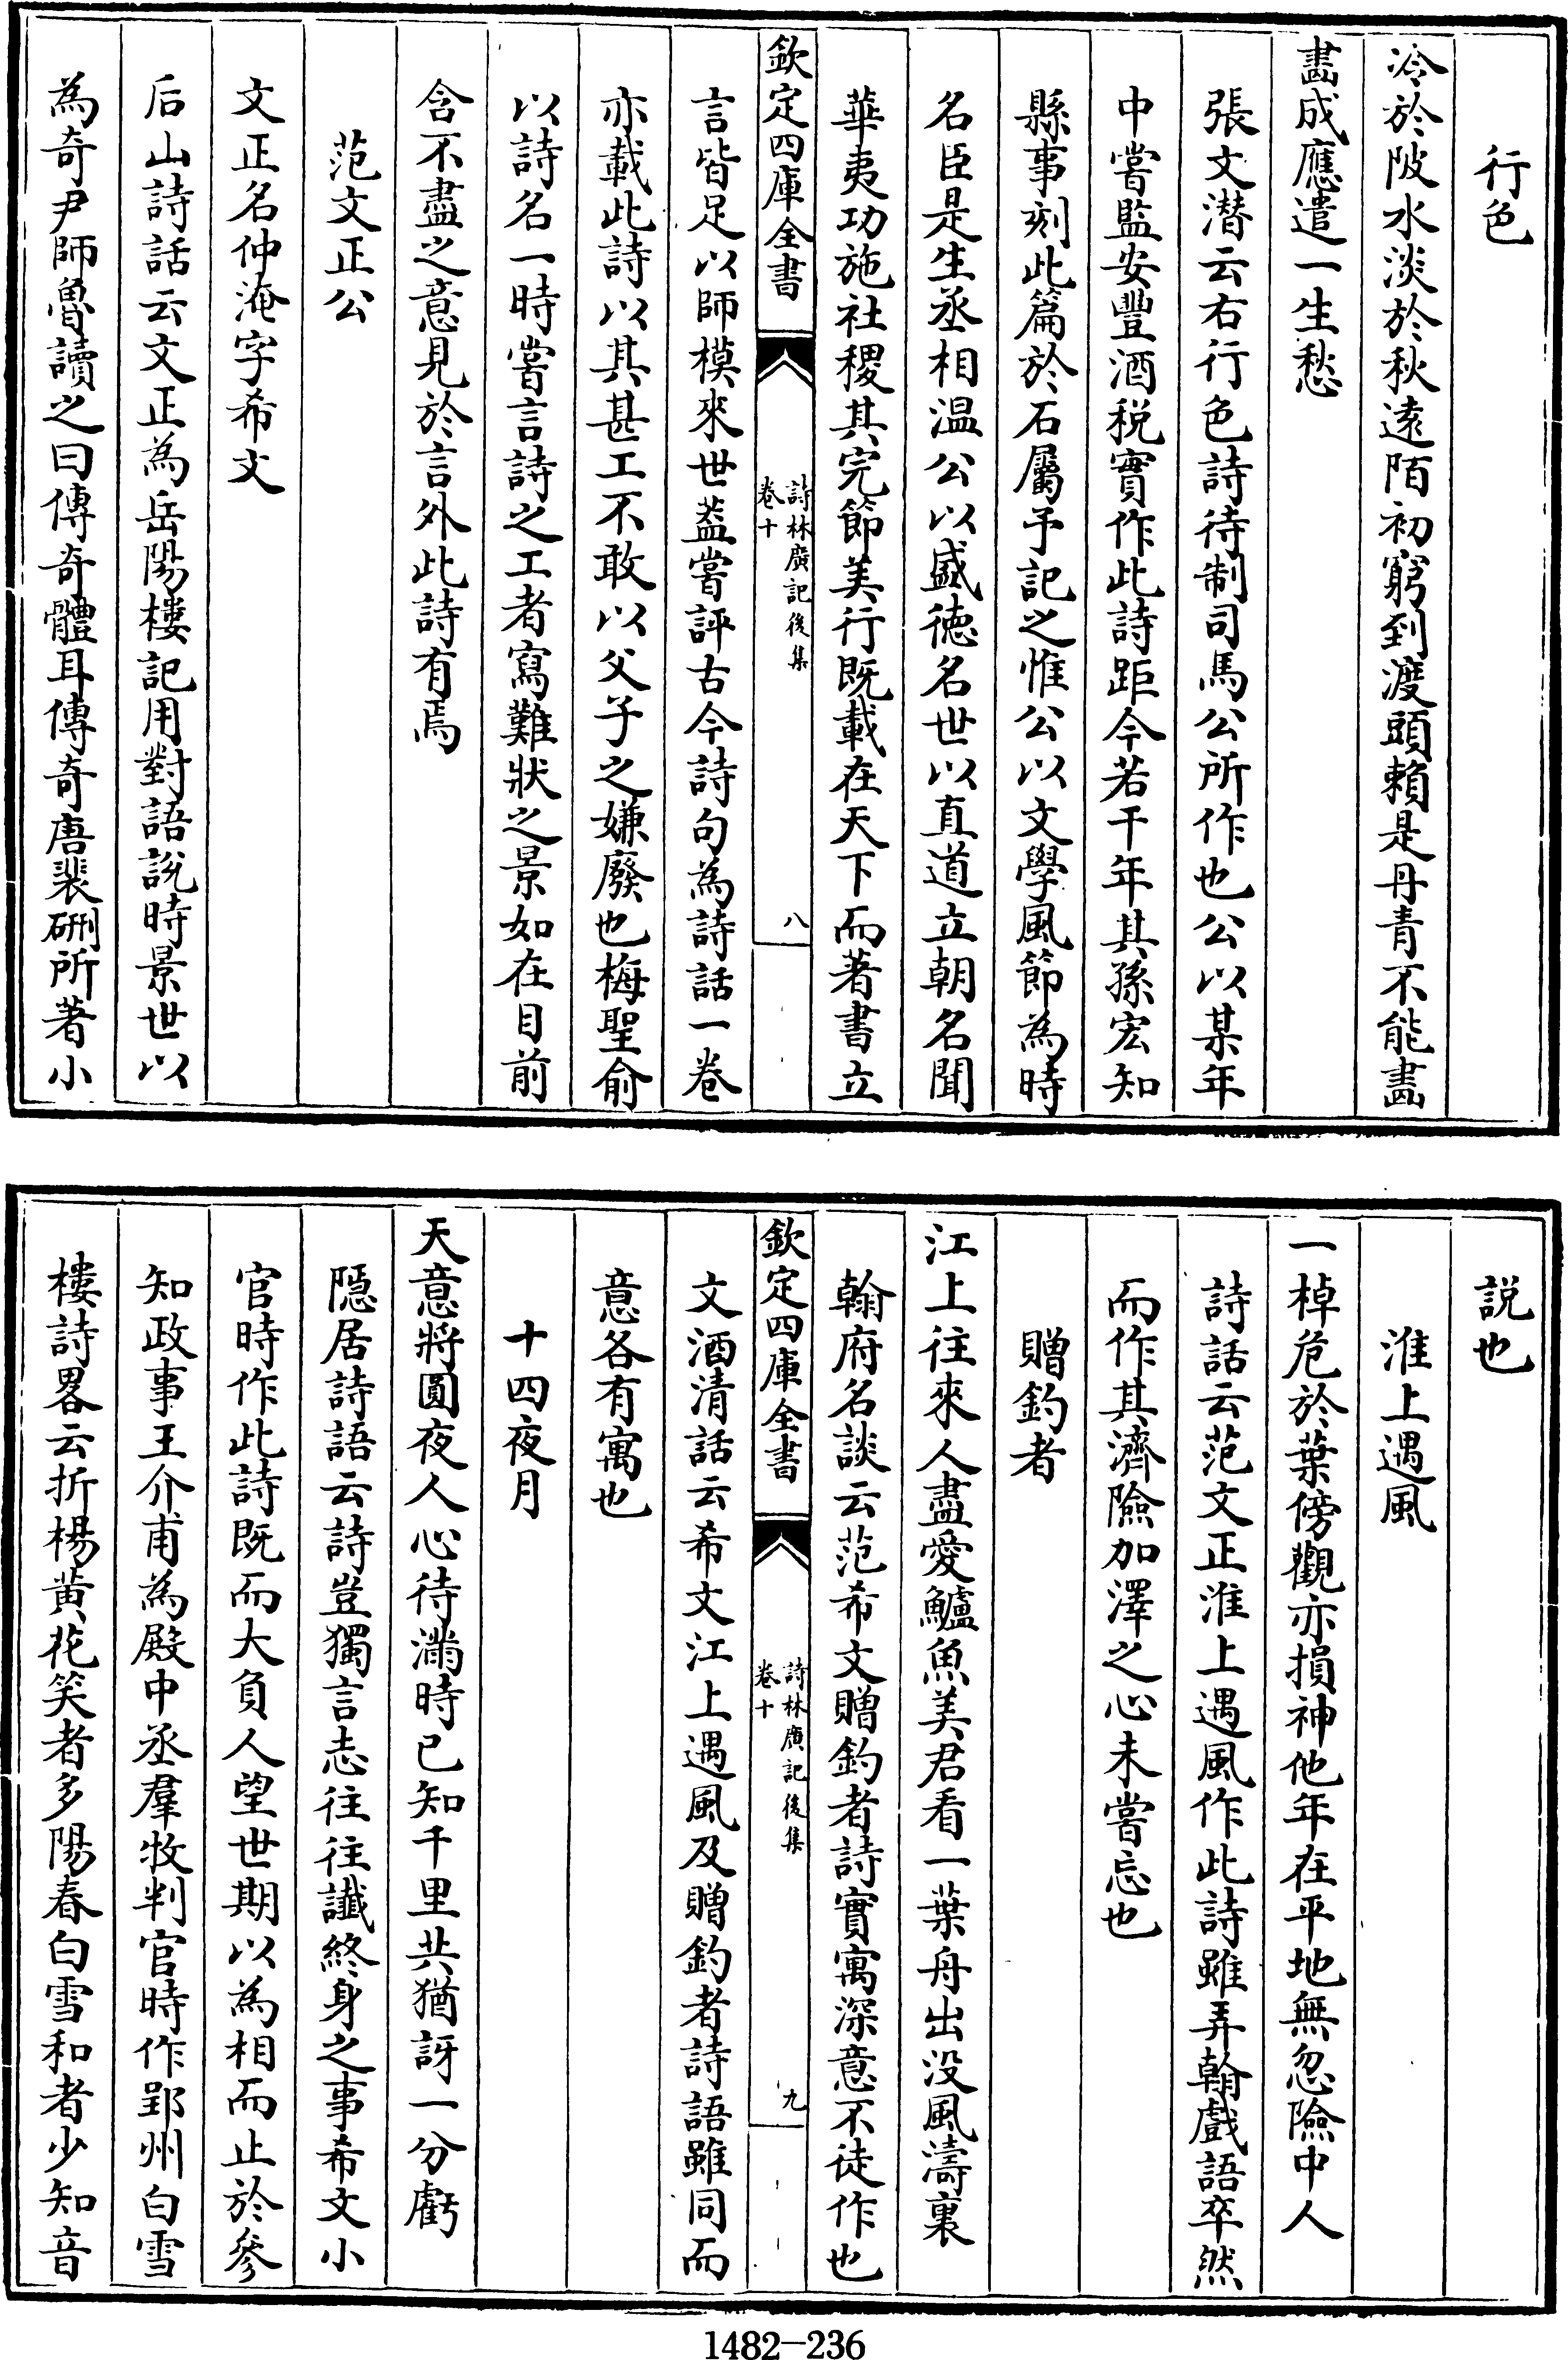 行色
冷於陂水淡於秋遠陌初窮到渡頭賴是丹青不能畫
畫成應遣一生愁
張文潛云右行色詩待制司馬公所作也公以某年
中嘗監安豐酒税實作此詩距今若干年其孫宏知
縣事刻此篇於石屬予記之惟公以文學風節為時
名臣是生丞相温公以盛徳名世以直道立朝名聞
華夷功施社稷其完節美行既載在天下而著書立
欽定四庫全書
詩林廣記後集
卷十
八
言皆足以師模來世葢嘗評古今詩句為詩話一卷
亦載此詩以其甚工不敢以父子之嫌廢也梅聖俞
以詩名一時嘗言詩之工者寫難狀之景如在目前
含不盡之意見於言外此詩有焉
范文正公
文正名仲淹字希文
后山詩話云文正為岳陽樓記用對語說時景世以
為奇尹師魯讀之曰傳奇體耳傳奇唐裴硎所著小
説也
淮上遇風
一棹危於葉傍觀亦損神他年在平地無忽險中人
詩話云范文正淮上遇風作此詩雖弄翰戲語卒然
而作其濟險加澤之心未嘗忘也
贈釣者
江上往來人盡愛鱸魚美君看一葉舟出没風濤裏
翰府名談云范希文贈釣者詩實寓深意不徒作也
欽定四庫全書
詩林廣記後集
卷十
九
文酒清話云希文江上遇風及贈釣者詩語雖同而
意各有寓也
十四夜月
天意將圓夜人心待滿時已知千里共猶訝一分虧
隠居詩語云詩豈獨言志往往讖終身之事希文小
官時作此詩既而大負人望世期以為相而止於參
知政事王介甫為殿中丞羣牧判官時作郢州白雪
樓詩畧云折楊黄花笑者多陽春白雪和者少知音
1482-236